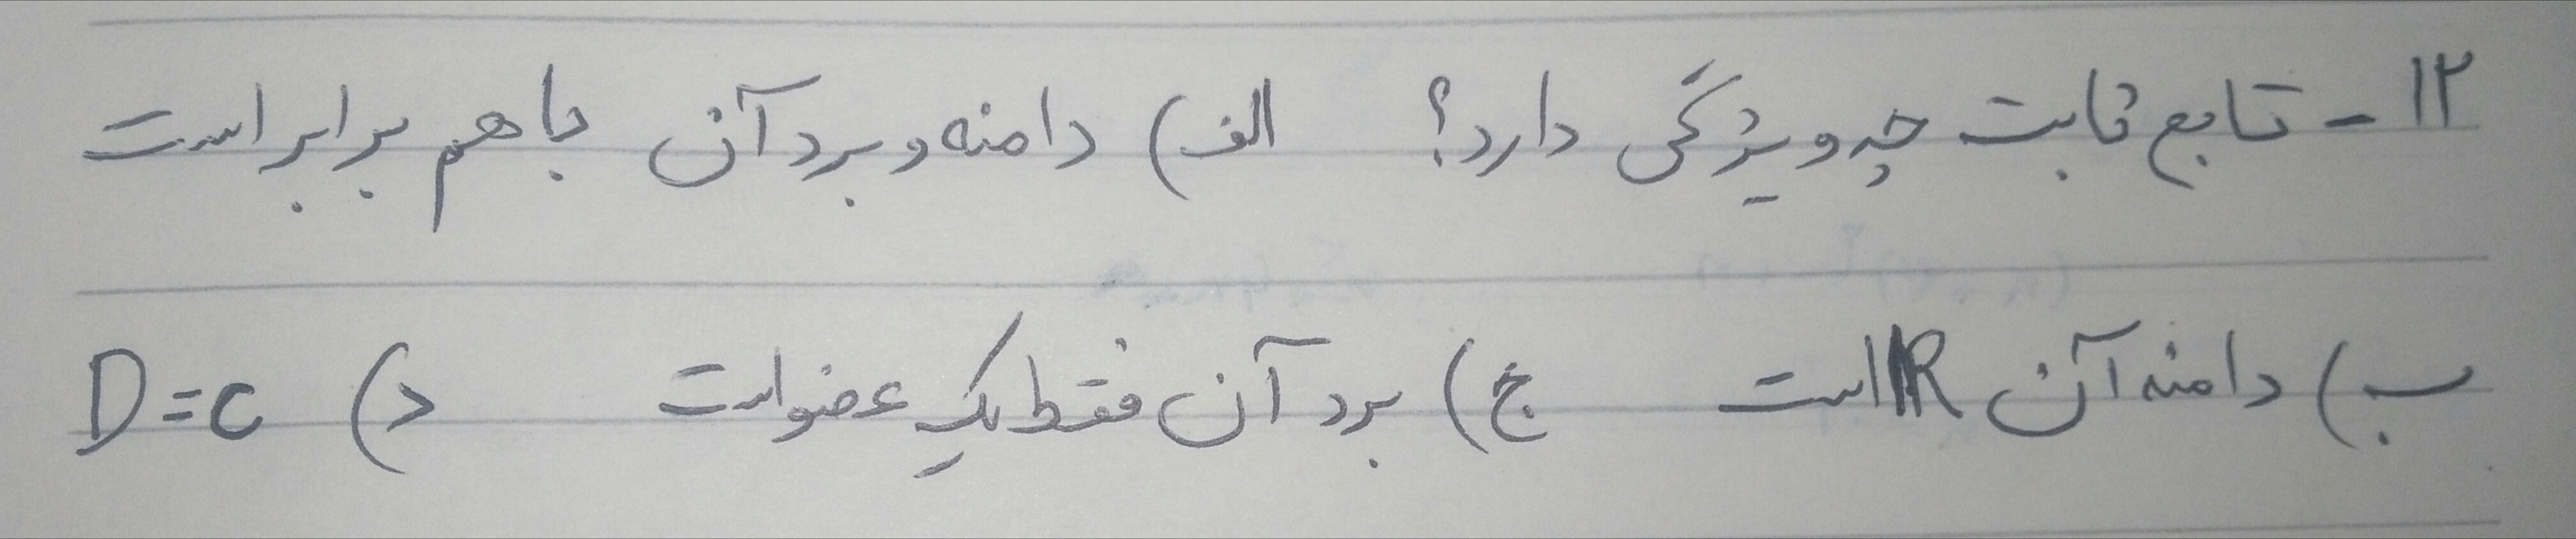 ۱۲ - تابع ثابت چه ویژگی دارد؟ الف) دامنه و برد آن با هم برابر است
ب) دامنه آن R است ج) برد آن فقط یک عضو است د) D = c